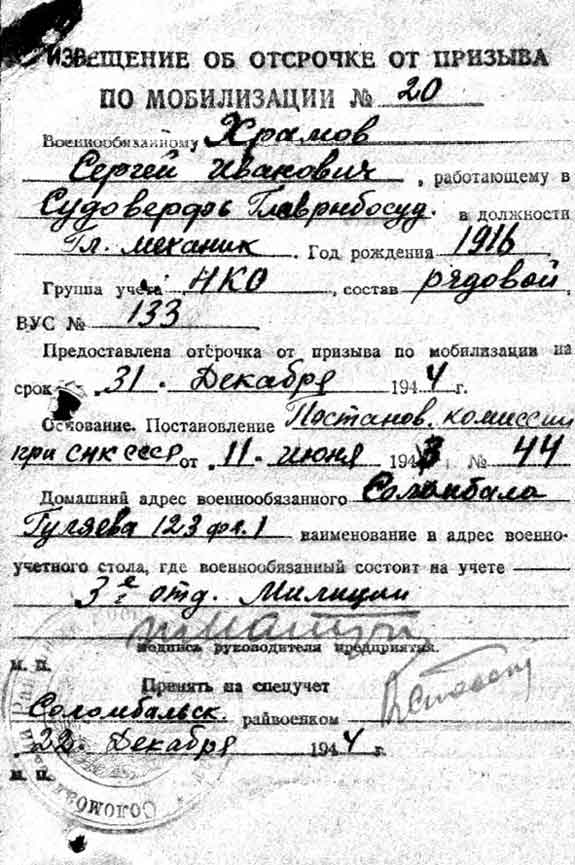 ИЗВЕЩЕНИЕ ОБ ОТСРОЧКЕ ОТ ПРИЗЫВА
ПО МОБИЛИЗАЦИИ № 20
Военнообязанному Храмов
Сергей Иванович, работающему в
Судоверфь Главрыбосуд. в должности
Гл. механик. Год рождения 1916
Группа учета НКО, состав рядовой,
ВУС № 133
Предоставлена отсрочка от призыва по мобилизации на
срок 31. Декабря 1944 г.
Основание. Постановление Постанов. комиссии
при СНК СССР от 11. июня 1943 № 44
Домашний адрес военнообязанного Соломбала
Гуляева 123 фл. 1 наименование и адрес военно-
учетного стола, где военнообязанный состоит на учете
3е отд. Милиции
Подпись руководителя предприятия.
М. П.
Принять на спецучет
Соломбальск. райвоенком
22. Декабря 1944 г.
М. П.